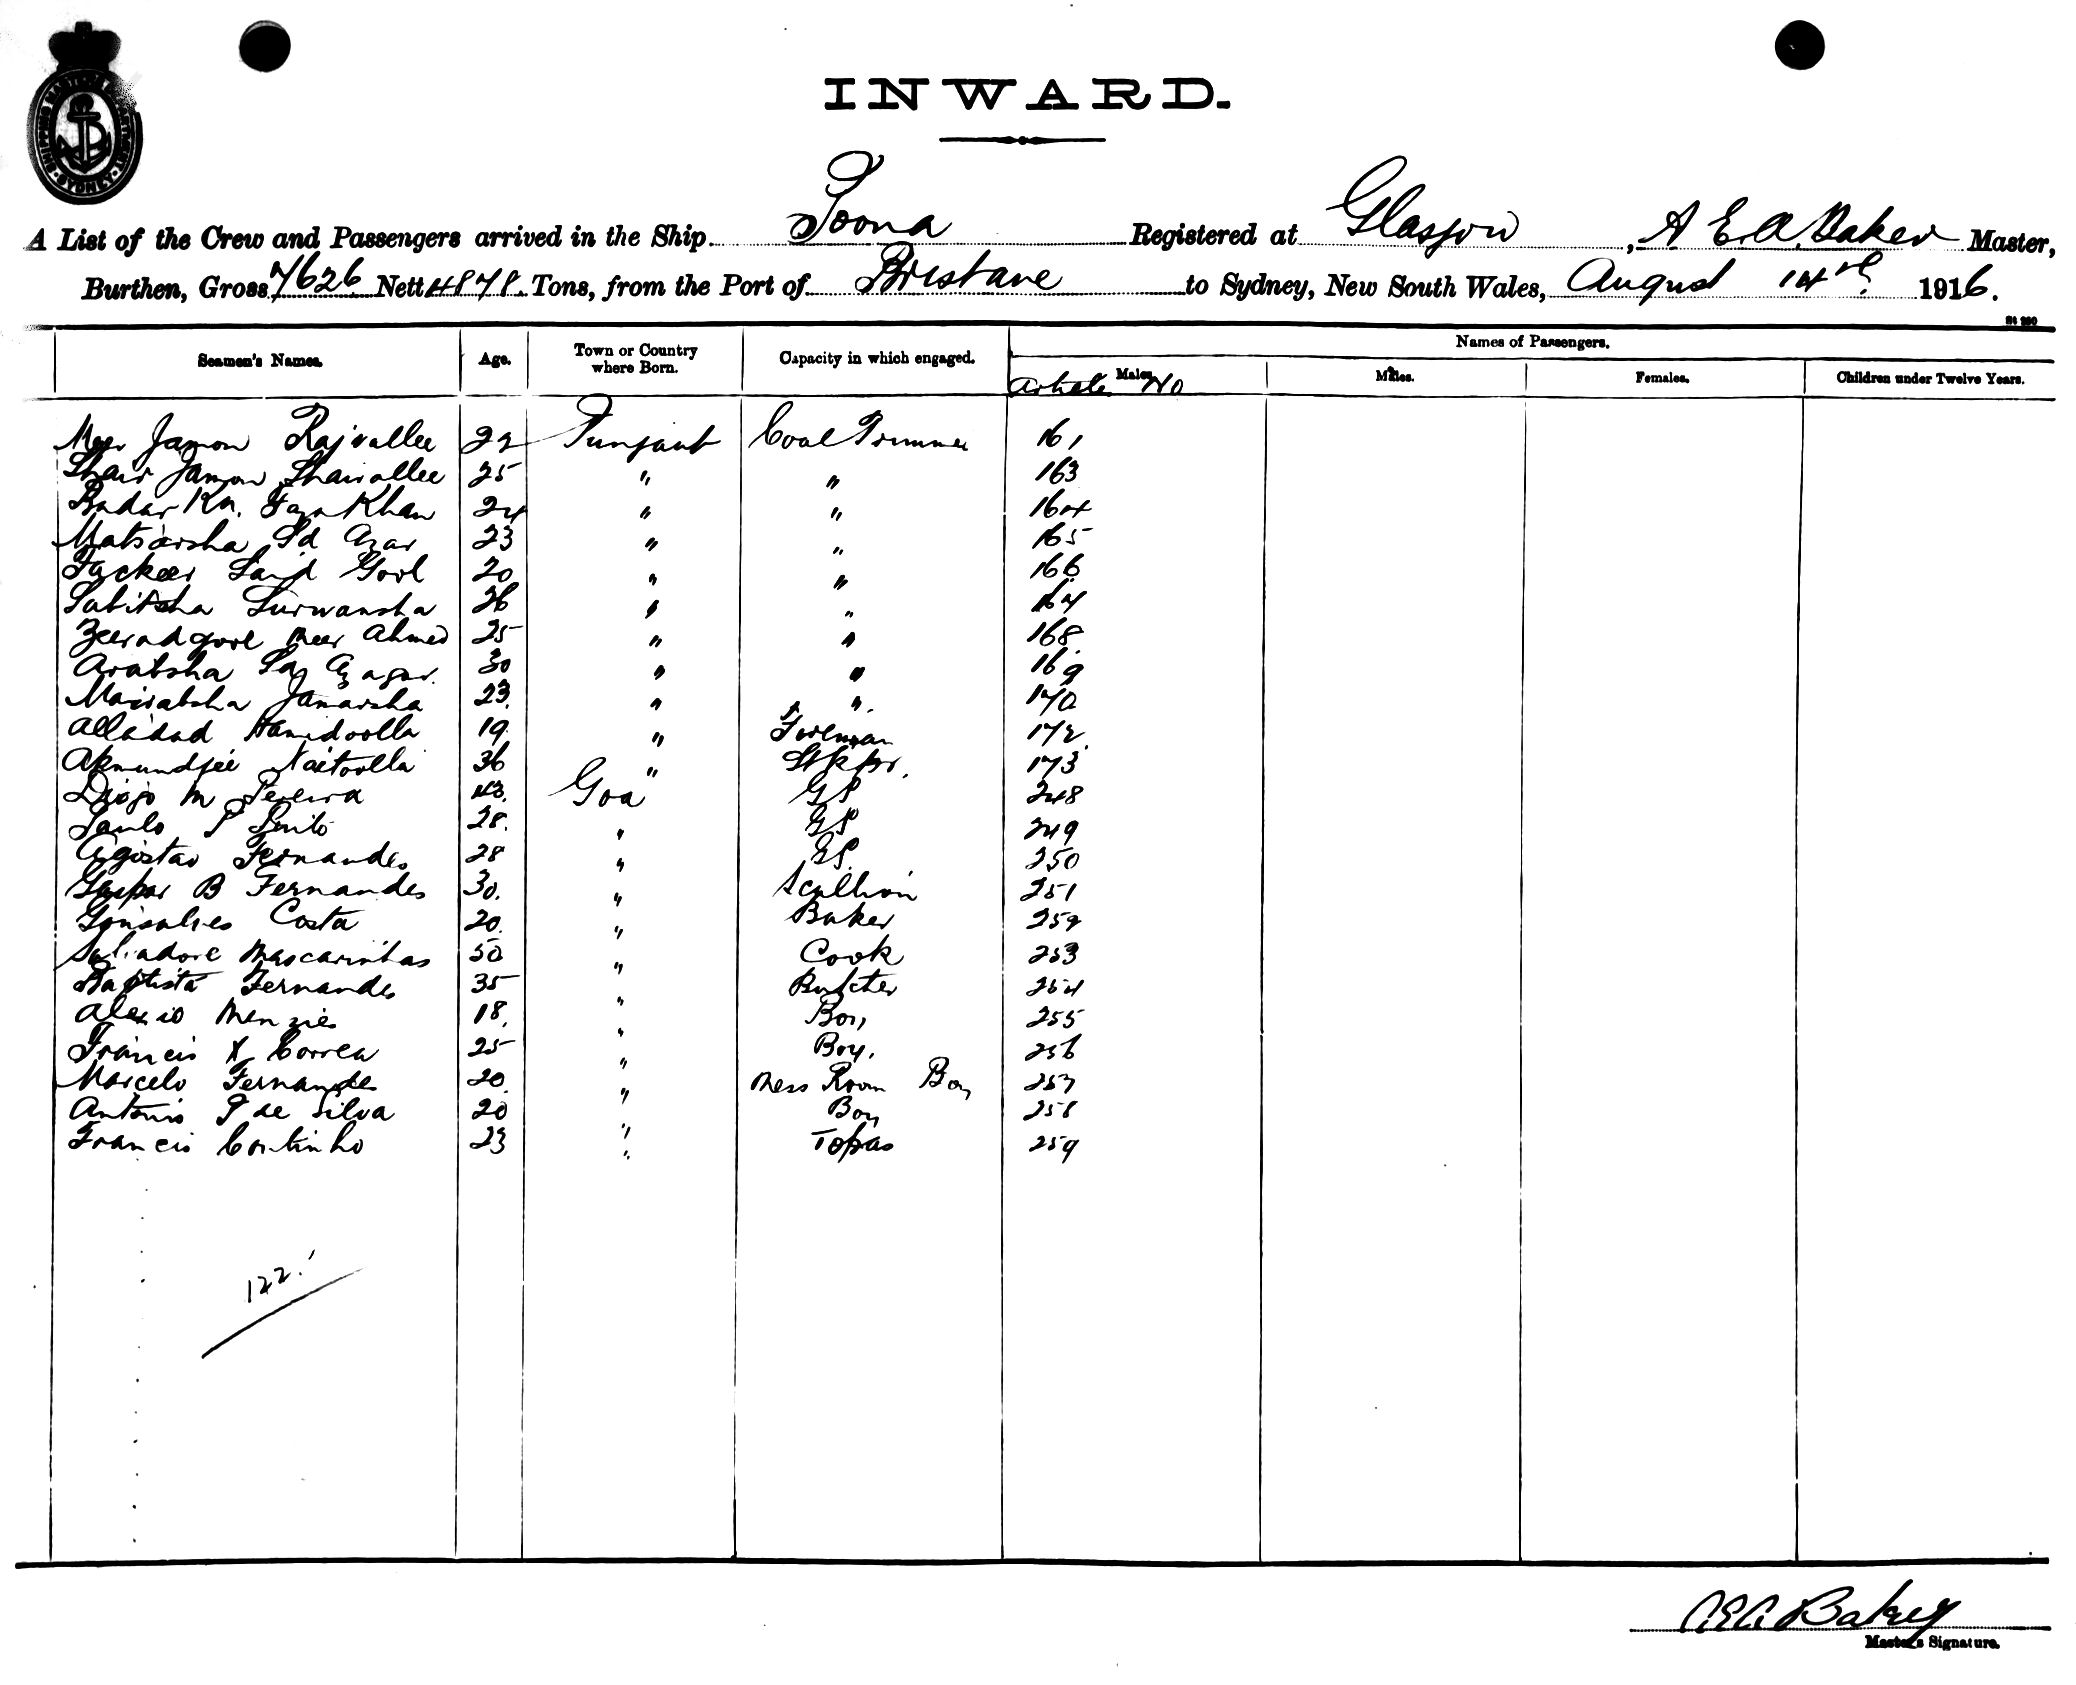 SHIPPING MASTER'S DEPARTMENT SYDNEY
INWARD.
A List of the Crew and Passengers arrived in the Ship Poona Registered at Glasgow, A E. A. Baker Master,
Burthen, Gross 7626 Nett 4878 Tons, from the Port of Brisbane to Sydney, New South Wales, August 14th 1916.
St 280
Seamen's Names. Age. Town or Country where Born. Capacity in which engaged. Names of Passengers.
Article No Males. Males. Females. Children under Twelve Years.
Meer Jamon Rajvallee 22 Punjaub Coal Trimmer 161
Shair Jamon Shaivallee 25 " " 163
Budar Kn. Faza Khan 24 " " 164
Matsarsha Sd Azar 23 " " 165
Fackeer Said Gool 20 " " 166
Sabitsha Surwansha 26 " " 167
Zeeradgool Meer Ahmed 25 " " 168
Arabsha Azagar. 30 " " 169
Mairabsha Jamarsha 23. " " 170
Alladad Hamidoolla 19 " Fireman 172
Naitoolla 36 " Stkpr. 173
Diogo M Pereira 43. Goa GS 248
28. " GS 249
Agostav Fernandes 28 " GS. 250
Gaspar B Fernandes 30. " Scullion 251
Gonsalves Costa 20. " Baker 252
Salvadore Mascarinhas 50 " Cook 253
Baptista Fernandes 35 " Butcher 254
Alexio Menzies 18. " Boy 255
Francis X Correa 25 " Boy. 256
Marcelo Fernandes 20. " Mess Room Boy 257
Antonio P de Silva 20 " Boy 258
Francis Coutinho 23 " Topas 259
122.
A E A Baker
Master's Signature.